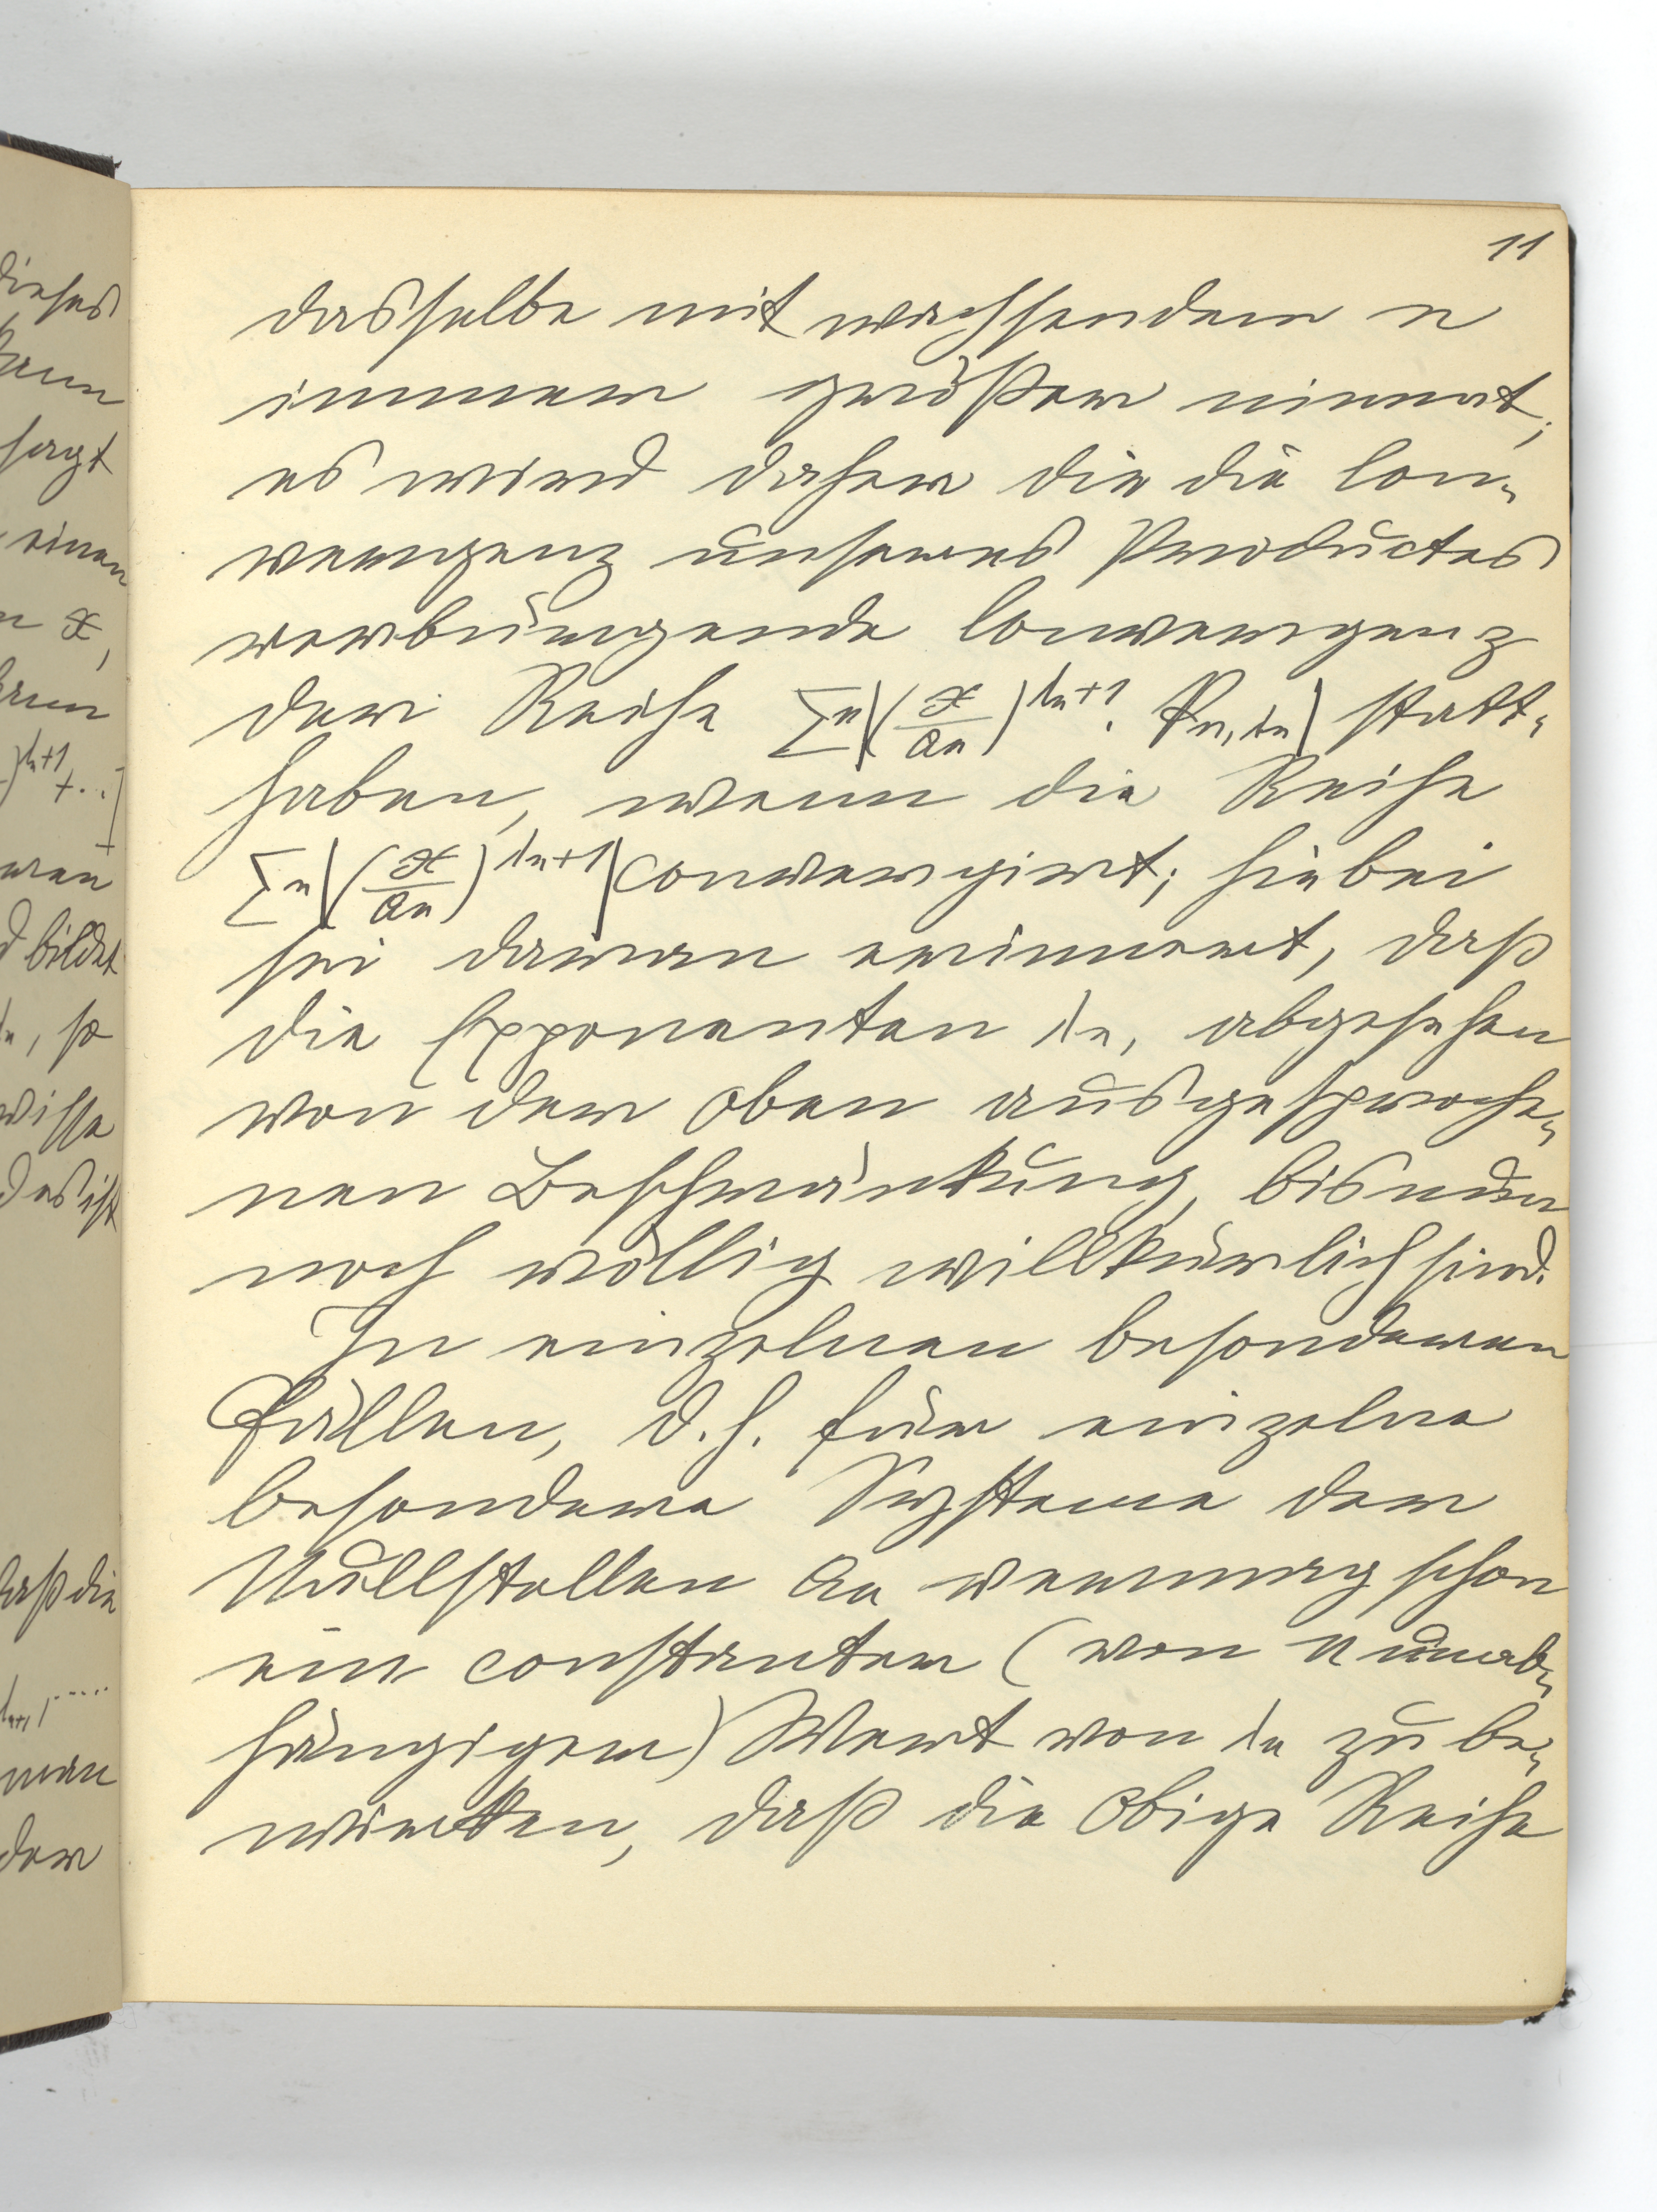 11
dieses
kann
sagt
einen
n x,
kann
)^{λn+1}+..]
eren
d bildet
λn, so
wisse
das ist
daß die
λn+1, .....
man
der
dasselbe mit wachsendem n
immer größer nimmt;
es wird daher die die Con-
vergenz unseres Productes
verbürgende Convergenz
der Reihe Σn|(x/an)^{λn+1}. Pn,λn| statt-
haben, wenn die Reihe
Σn|(x/an)^{λn+1}| convergirt; hiebei
sei daran erinnert, daß
die Exponenten λn, abgesehen
von der oben ausgesproche-
nen Beschränkung, bis nun
noch völlig willkürlich sind.
In einzelnen besonderen
Fällen, d.h. für einzelne
besondere Systeme der
Nullstellen an vermag schon
ein constanter (von n unab-
hängiger) Wert von λn zu be-
wirken, daß die obige Reihe